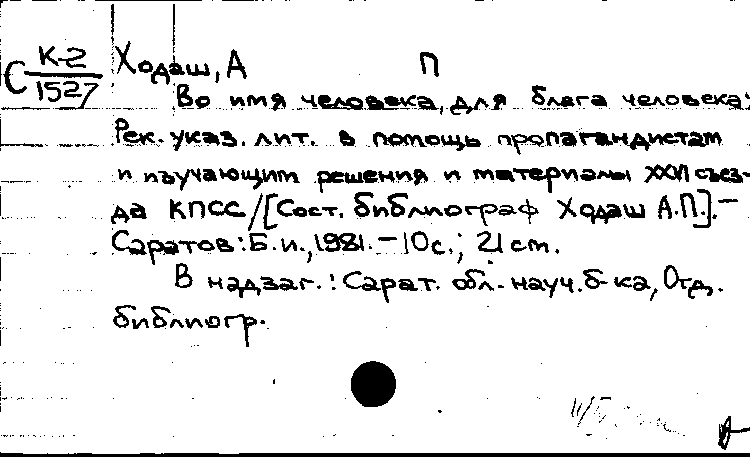 С К-2/1527
Ходаш, А П
Во имя человека, для блага человека:
Рек. указ. лит. в помощь пропагандистам
и изучающим решения и материалы XXVI съез-
да КПСС/[Сост. библиограф Ходаш А.П.].—
Саратов: Б.и., 1981.—10с.; 21 см.
В надзаг.: Сарат. обл. науч. б-ка, Отд.
библиогр.